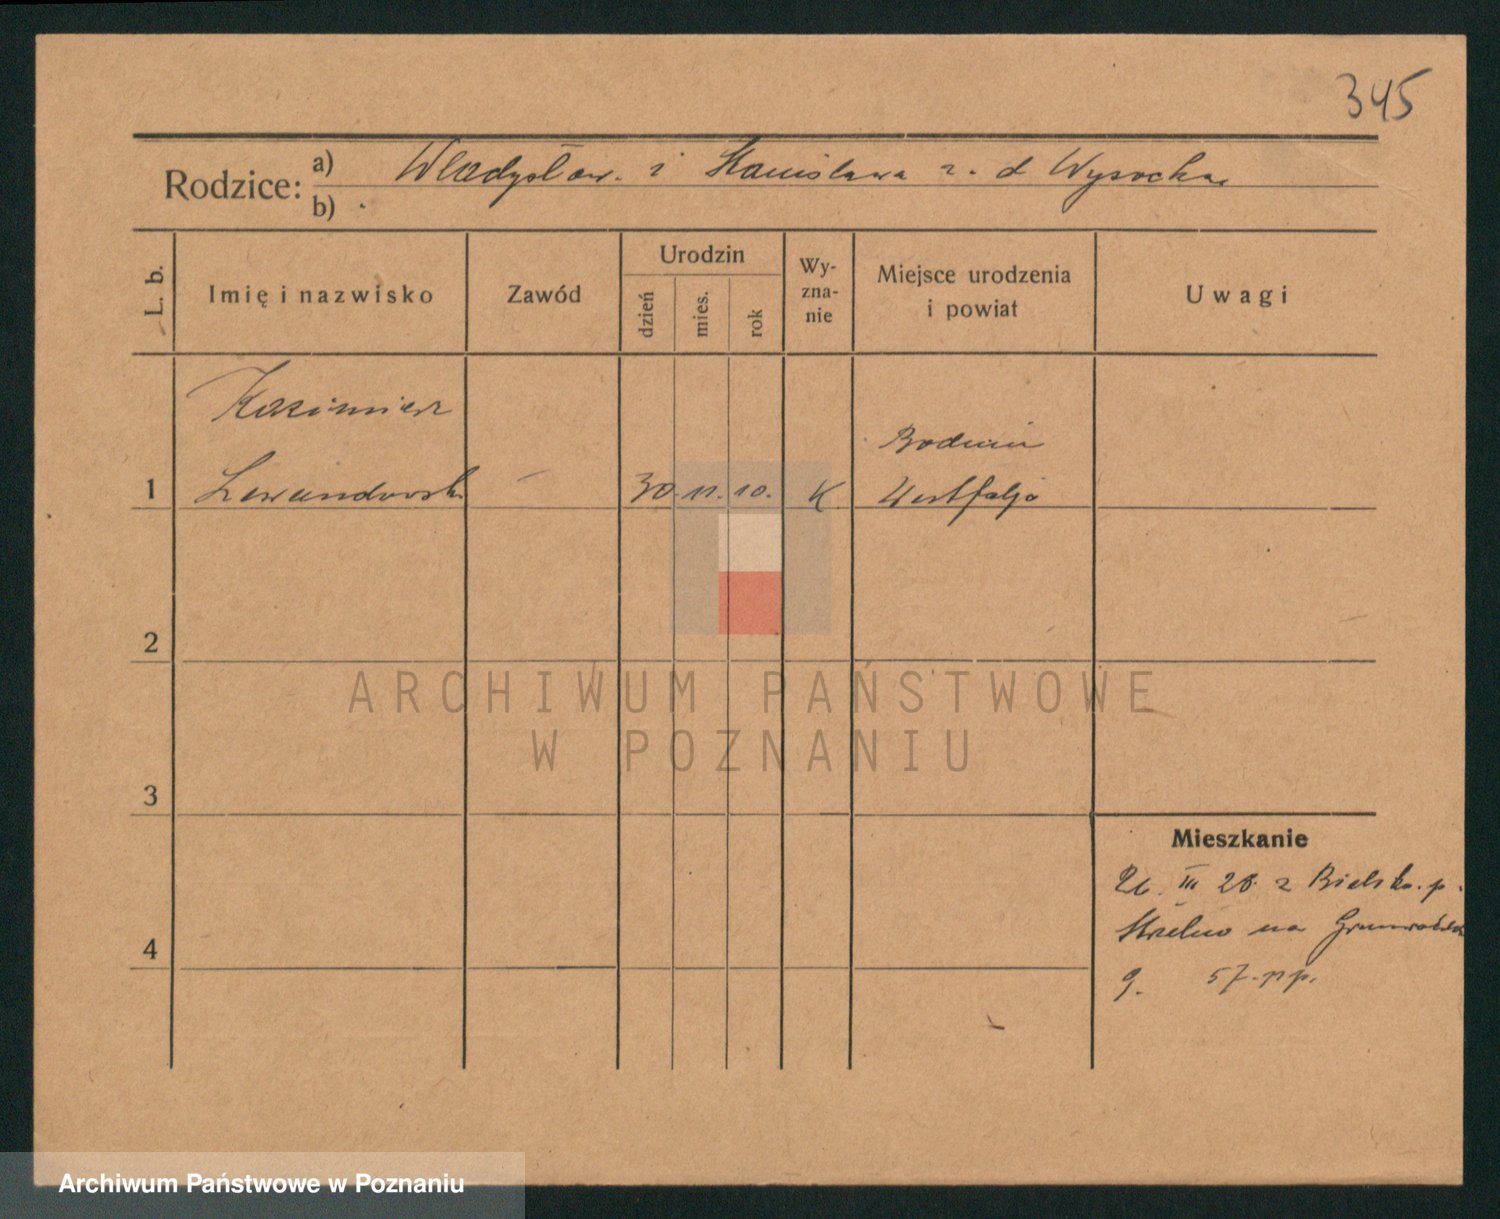 345
Rodzice: a) Władysław. i Stanisława z. d Wysocka
b)
L. b. Imię i nazwisko Zawód Urodzin dzień mies. rok Wy-zna-nie Miejsce urodzenia i powiat Uwagi
Kazimierz
1 Lewandowski — 30. 11. 10. K Westfalja
2
ARCHIWUM PAŃSTWOWE
W POZNANIU
3
Mieszkanie
III 28 z Bielsko. p.
4 Strzelno na
57. pp.
Archiwum Państwowe w Poznaniu